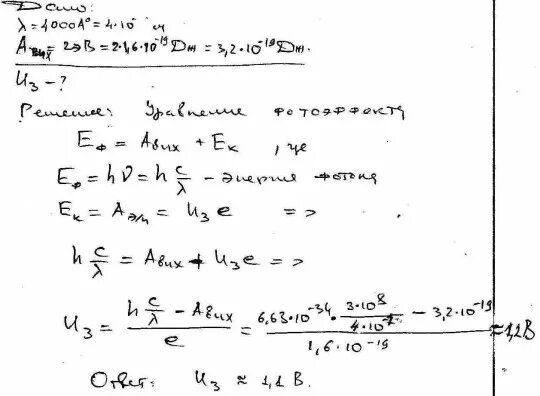 Дано:
λ = 4000 A° = 4·10 м
Aвих = 2эВ = 2·1,6·10⁻¹⁹ Дж = 3,2·10⁻¹⁹ Дж.
Uз - ?
Решение: Уравнение фотоэффекта
Eф = Aвих + Eк , где
Eф = hν = h c/λ - энергия фотона
Eк = Aэл = Uз e => .
h c/λ = Aвих + Uз e =>
Uз = (h c/λ - Aвих)/e = (6,63·10⁻³⁴ · 3·10⁸/4·10⁻⁷ - 3,2·10⁻¹⁹)/1,6·10⁻¹⁹ ≈ 1,1 В
Ответ: Uз ≈ 1,1 В.